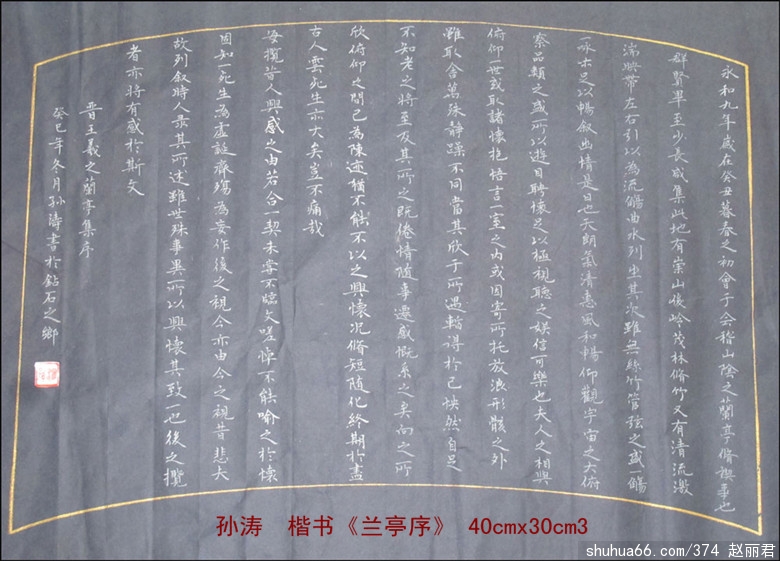 永和九年歲在癸丑暮春之初會于會稽山陰之蘭亭脩禊事也
群賢畢至少長咸集此地有崇山峻岭茂林脩竹又有清流激
湍映帶左右引以為流觴曲水列坐其次雖無絲竹管弦之盛一觴
一咏亦足以暢敘幽情是日也天朗氣清惠風和暢仰觀宇宙之大俯
察品類之盛所以遊目聘懷足以極視聽之娛信可樂也夫人之相與
俯仰一世或取諸懷抱悟言一室之内或因寄所托放浪形骸之外
雖取舍萬殊靜躁不同當其欣于所遇輒得於已怏然自足
不知老之將至及其所之既倦情随事遷感慨系之矣向之所
欣俯仰之間已為陳迹猶不能不以之興懷况脩短随化終期於盡
古人雲死生亦大矣豈不痛哉
每攬昔人興感之由若合一契未嘗不臨文嗟悼不能喻之於懷
固知一死生為虛誕齊殤為妄作後之視今亦由今之視昔悲夫
故列敘時人录其所述雖世殊事異所以興懷其致一也後之攬
者亦將有感於斯文
晋王羲之蘭亭集序
癸巳年冬月孙濤書於鉆石之鄉
孙涛 楷书《兰亭序》 40cmx30cm3
shuhua66.com/374 赵丽君